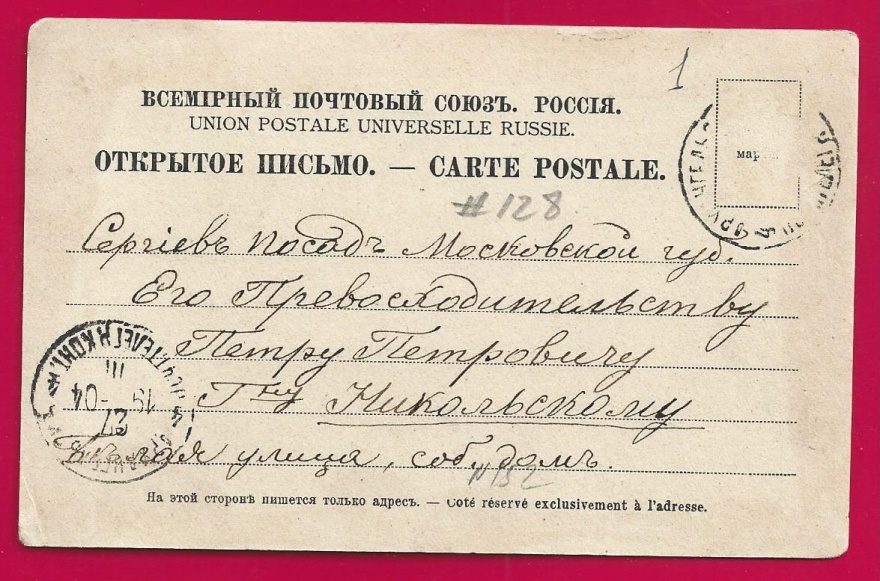 1
ВСЕМІРНЫЙ ПОЧТОВЫЙ СОЮЗЪ. РОССІЯ.
UNION POSTALE UNIVERSELLE RUSSIE.
мар
ОТКРЫТОЕ ПИСЬМО. — CARTE POSTALE.
#128
Сергіевъ Посадъ Московской губ.
Его Превосходительству
Петру Петровичу
Гну Никольскому
улица, соб. домъ.
27
III
19-04
На этой сторонѣ пишется только адресъ. — Coté réservé exclusivement à l'adresse.